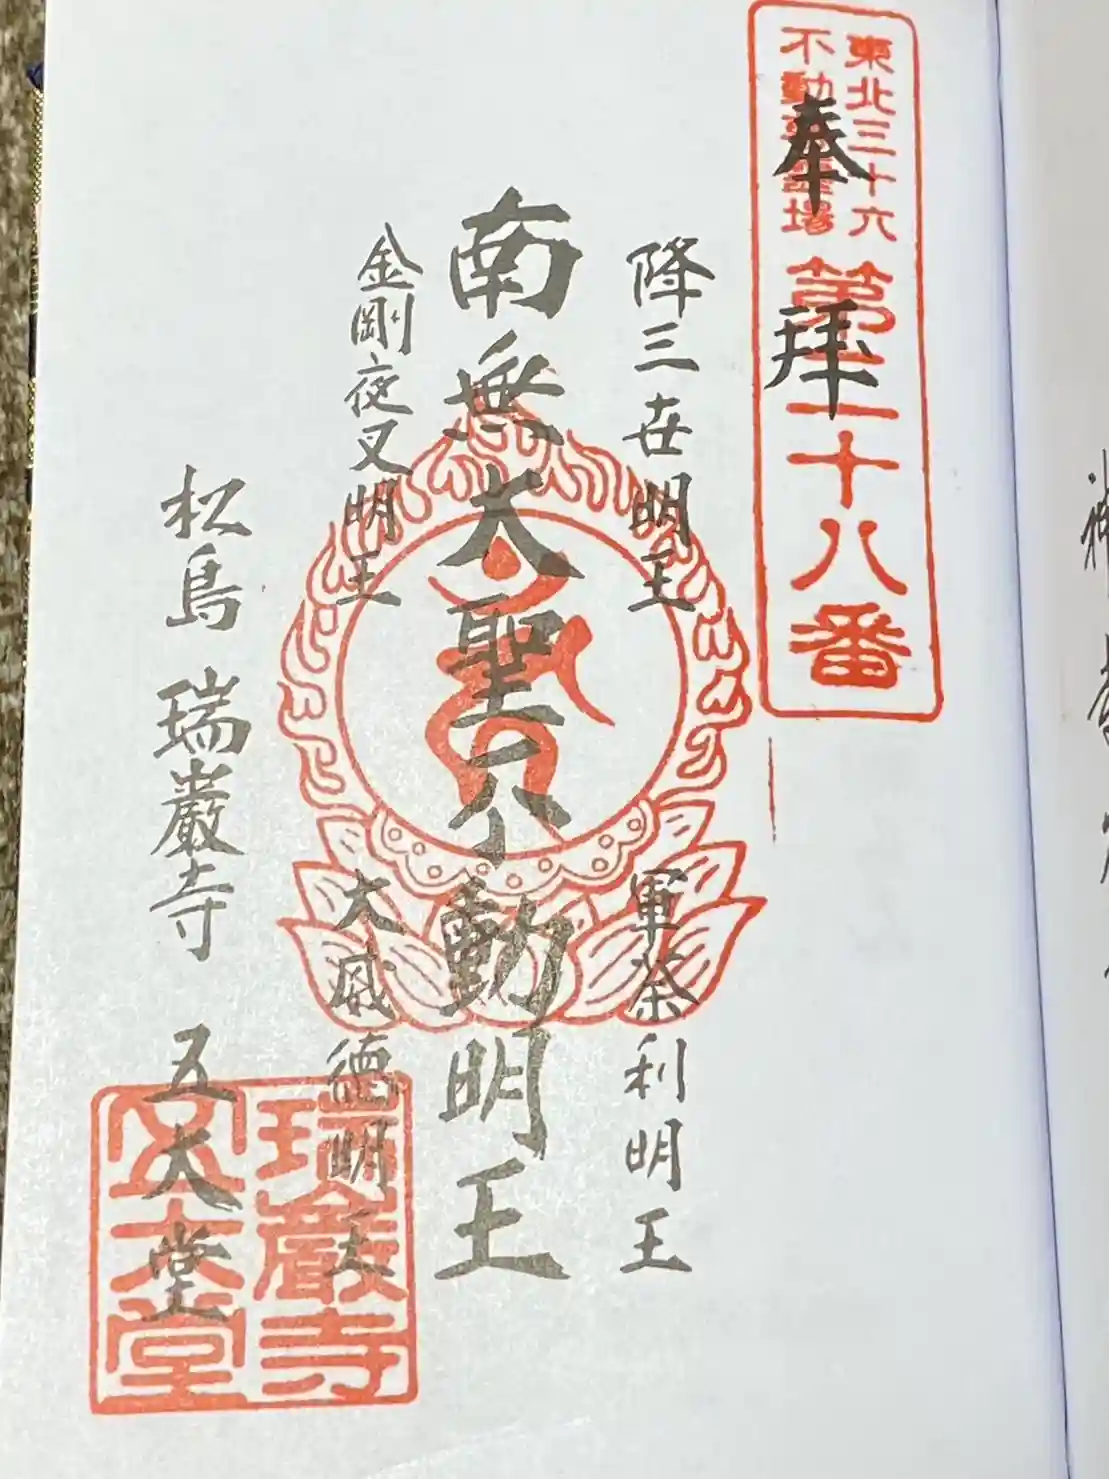 東北三十六
不動尊霊場
第二十八番
奉拝
降三世明王
軍荼利明王
南無大聖不動明王
金剛夜叉明王
大威德明王
松島 瑞巌寺 五大堂
瑞巌寺
五大堂